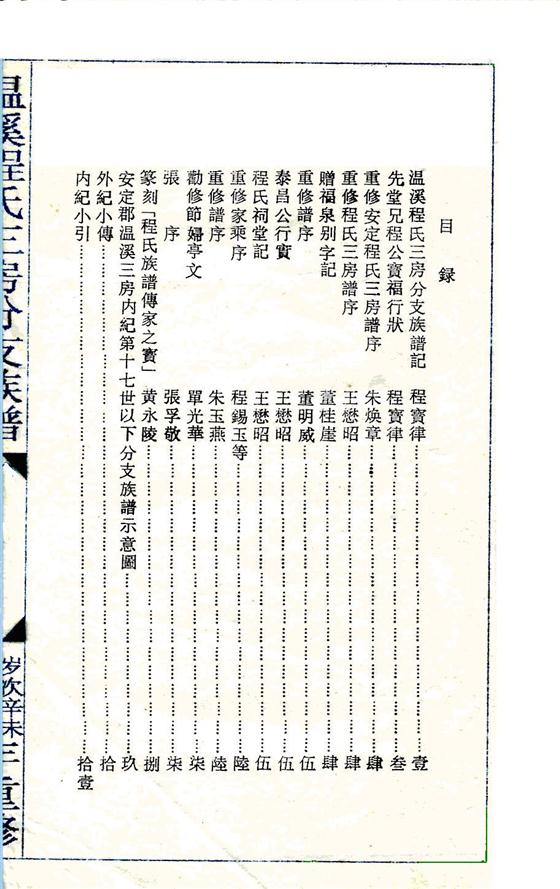 目錄
温溪程氏三房分支族譜記 程寳律 壹
先堂兄程公寳福行狀 程寳律 叁
重修安定程氏三房譜序 朱煥章 肆
重修程氏三房譜序 王懋昭 肆
贈福泉别字記 董桂崖 肆
重修譜序 董明威 伍
泰昌公行實 王懋昭 伍
程氏祠堂記 王懋昭 伍
重修家乘序 程錫玉等 陸
重修譜序 朱玉燕 陸
勸修節婦亭文 單光華 柒
張序 張孚敬 柒
篆刻「程氏族譜傳家之寳」 黄永陵 捌
安定郡温溪三房内紀第十七世以下分支族譜示意圖 玖
外紀小傳 拾
内紀小引 拾壹
温溪程氏三房分支族譜
岁次辛未三重修